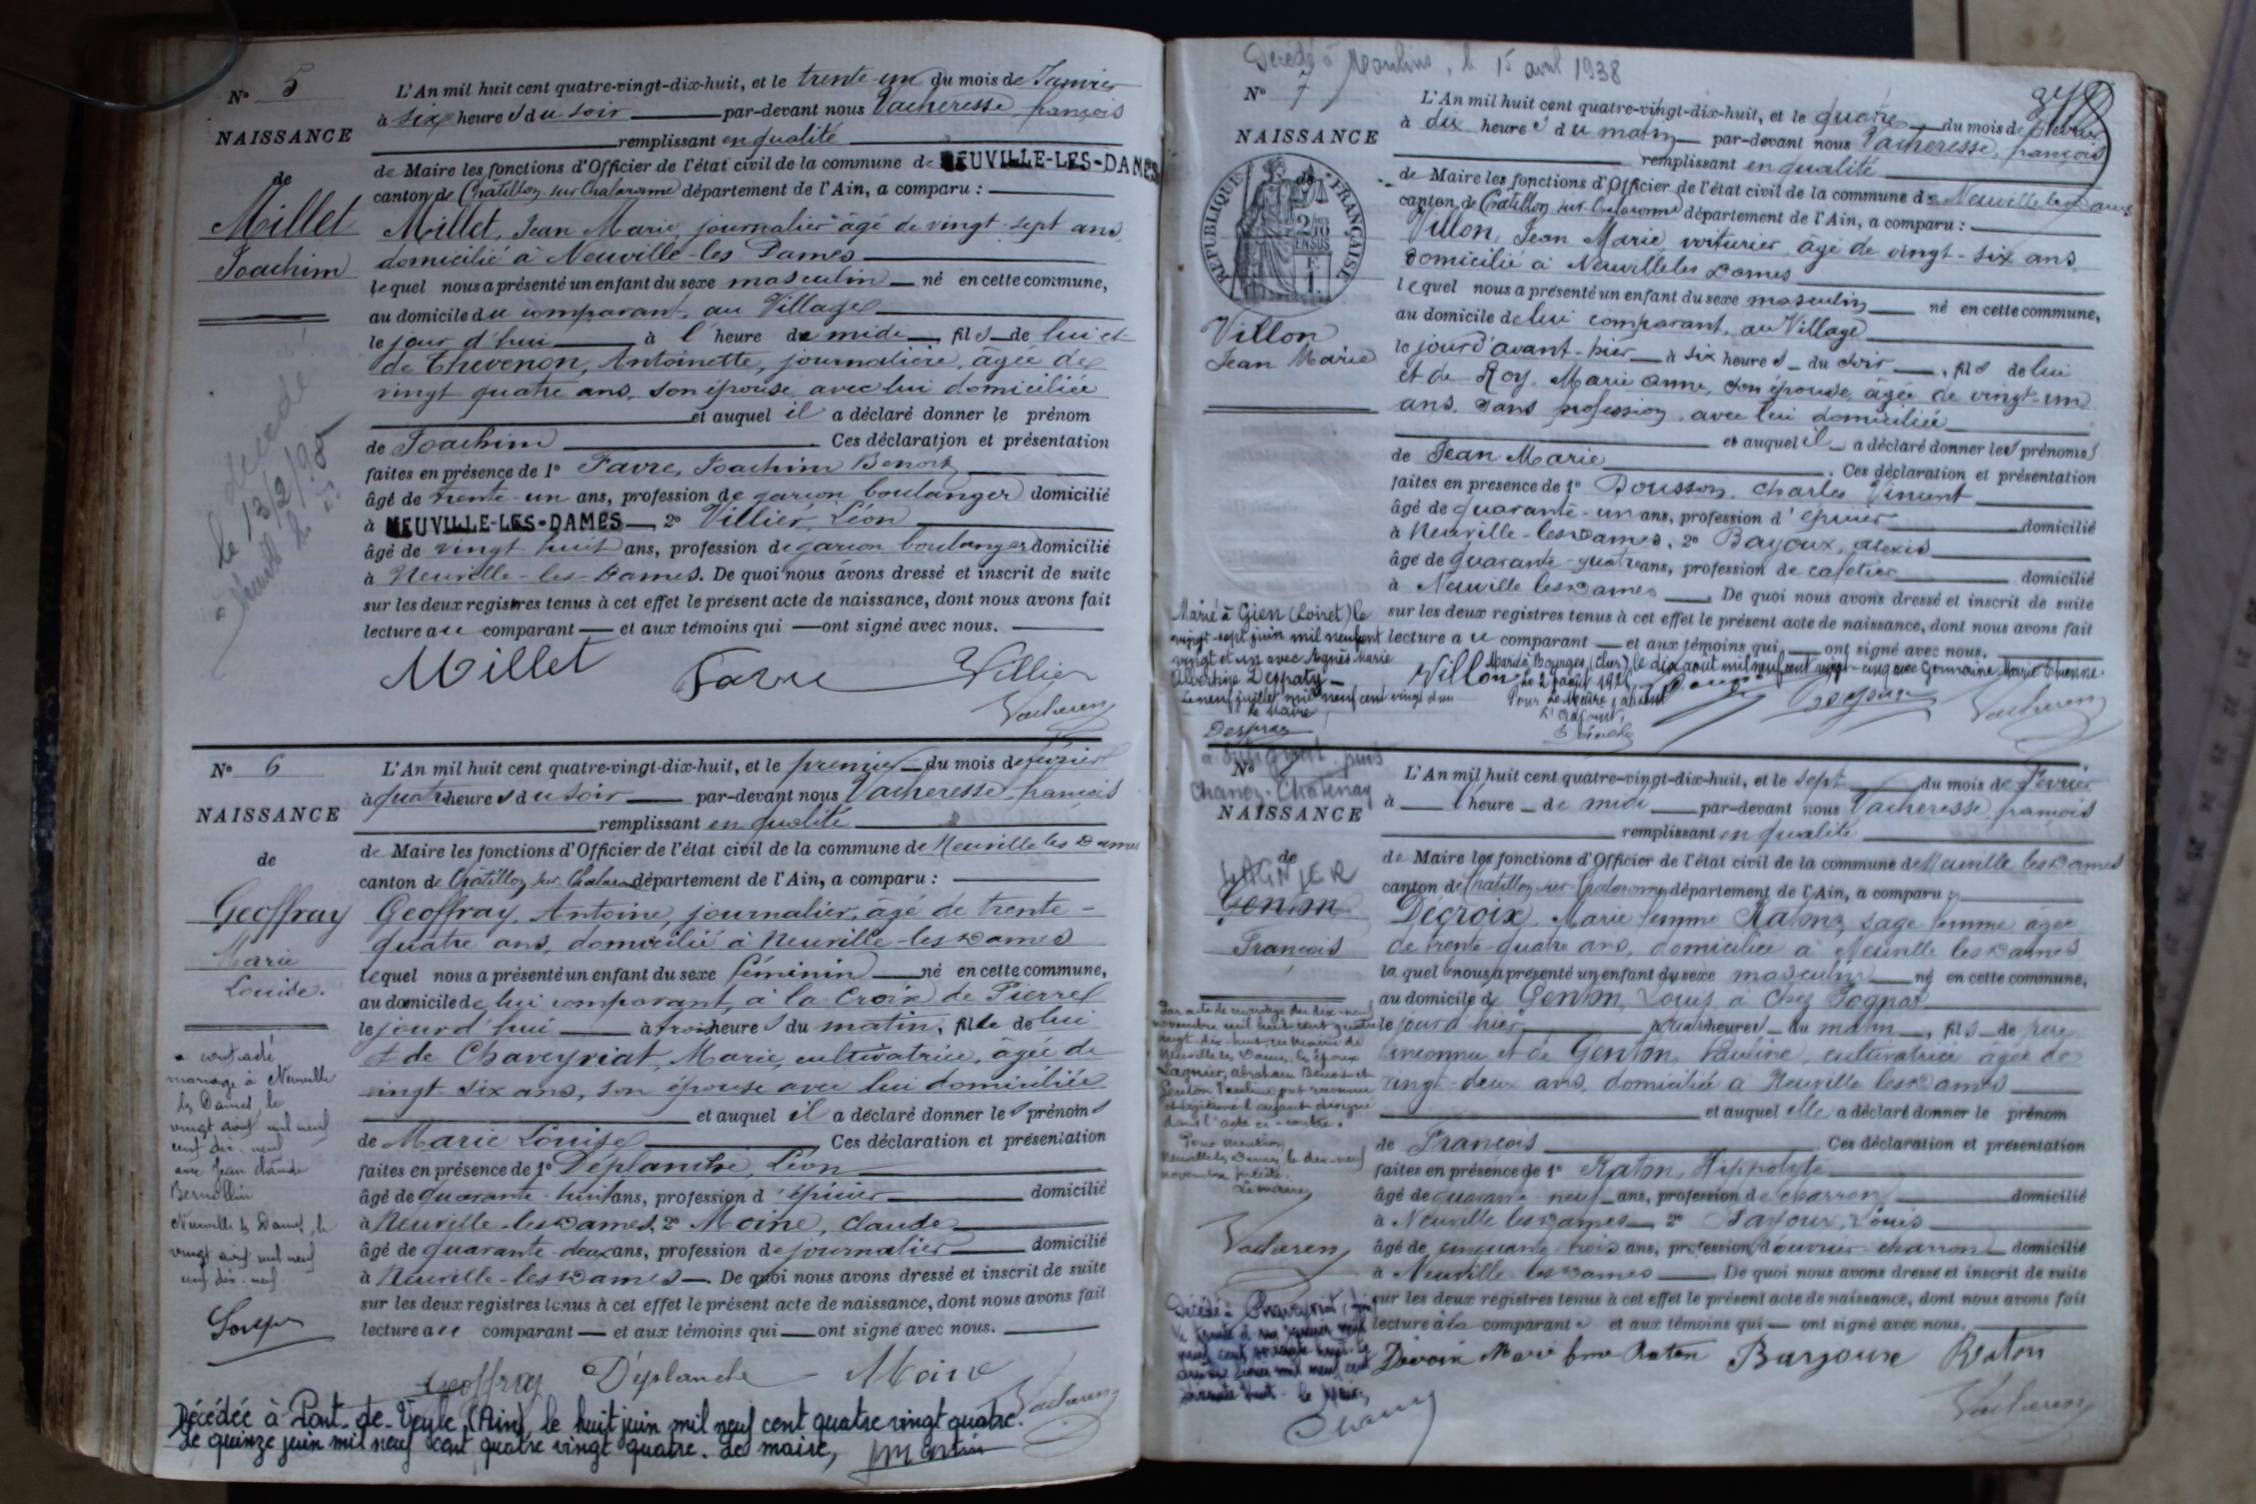 N° 5
NAISSANCE
de
Millet
Joachim
L'An mil huit cent quatre-vingt-dix-huit, et le trente-un du mois de Janvier
à six heures du soir par-devant nous Vacheresse, françois
remplissant en qualité
de Maire les fonctions d'Officier de l'état civil de la commune de NEUVILLE-LES-DAMES
canton de Châtillon sur Chalaronne département de l'Ain, a comparu :
Millet, Jean Marie, journalier âgé de vingt-sept ans,
domicilié à Neuville-les-Dames
lequel nous a présenté un enfant du sexe masculin né en cette commune,
au domicile du comparant, au Village
le jour d'hui à l'heure de midi, fils de lui et
de Thevenon, Antoinette, journalière, âgée de
vingt quatre ans, son épouse avec lui domiciliée
et auquel il a déclaré donner le prénom
de Joachim Ces déclaration et présentation
faites en présence de 1° Favre, Joachim Benoit
âgé de trente-un ans, profession de garçon boulanger domicilié
à NEUVILLE-LES-DAMES, 2° Villier, Léon
âgé de vingt huit ans, profession de garçon boulanger domicilié
à Neuville-les-Dames. De quoi nous avons dressé et inscrit de suite
sur les deux registres tenus à cet effet le présent acte de naissance, dont nous avons fait
lecture au comparant et aux témoins qui ont signé avec nous.
décédé
le 13/2/
Millet Favre Villier
Vacheresse
N° 6
NAISSANCE
de
Geoffray
Marie
Louise.
L'An mil huit cent quatre-vingt-dix-huit, et le premier du mois de février
à quatre heures du soir par-devant nous Vacheresse, françois
remplissant en qualité
de Maire les fonctions d'Officier de l'état civil de la commune de Neuville les Dames
canton de Châtillon sur Chalaronne département de l'Ain, a comparu :
Geoffray, Antoine, journalier, âgé de trente-
quatre ans, domicilié à Neuville-les-Dames
lequel nous a présenté un enfant du sexe féminin né en cette commune,
au domicile de lui comparant, à la Croix de Pierre
le jour d'hui à trois heures du matin, fille de lui
et de Chaveyriat, Marie, cultivatrice, âgée de
vingt-six ans, son épouse avec lui domiciliée
et auquel il a déclaré donner les prénoms
de Marie Louise Ces déclaration et présentation
faites en présence de 1° Déplanche, Léon
âgé de quarante-huit ans, profession d'épicier domicilié
à Neuville-les-Dames, 2° Moine, Claude
âgé de quarante-deux ans, profession de journalier domicilié
à Neuville-les-Dames. De quoi nous avons dressé et inscrit de suite
sur les deux registres tenus à cet effet le présent acte de naissance, dont nous avons fait
lecture au comparant et aux témoins qui ont signé avec nous.
a contracté
mariage à Neuville
les Dames, le
vingt avril mil neuf
cent dix-neuf
avec Jean Claude
Neuville les Dames, le
vingt avril mil neuf
cent dix-neuf
Geoffray Déplanche Moine
Vacheresse
Décédée à Pont-de-Veyle (Ain), le huit juin mil neuf cent quatre vingt quatre.
Le quinze juin mil neuf cent quatre vingt quatre. Le maire,
Décédé à Moulins, le 15 avril 1938
N° 7
NAISSANCE
de
RÉPUBLIQUE FRANÇAISE
Villon
Jean Marie
L'An mil huit cent quatre-vingt-dix-huit, et le quatre du mois de février
à dix heures du matin par-devant nous Vacheresse, françois
remplissant en qualité
de Maire les fonctions d'Officier de l'état civil de la commune de Neuville les Dames
canton de Châtillon sur Chalaronne département de l'Ain, a comparu :
Villon, Jean Marie, voiturier, âgé de vingt-six ans,
domicilié à Neuville les Dames
lequel nous a présenté un enfant du sexe masculin né en cette commune,
au domicile de lui comparant, au Village
le jour d'avant-hier à six heures du soir, fils de lui
et de Roy, Marie Anne, son épouse, âgée de vingt-un
ans, sans profession, avec lui domiciliée
et auquel il a déclaré donner les prénoms
de Jean Marie. Ces déclaration et présentation
faites en présence de 1° Dousson, Charles Vincent
âgé de quarante-un ans, profession d'épicier domicilié
à Neuville-les-Dames, 2° Bayoux, Alexis
âgé de quarante-quatre ans, profession de cafetier domicilié
à Neuville les Dames. De quoi nous avons dressé et inscrit de suite
sur les deux registres tenus à cet effet le présent acte de naissance, dont nous avons fait
lecture au comparant et aux témoins qui ont signé avec nous.
Marié à Gien (Loiret) le
vingt-sept juin mil neuf cent
vingt et un avec Agnès Marie
Albertine Despaty
Le neuf juillet mil neuf cent vingt et un
Le Maire,
Marié à Bourges (Cher) le dix août mil neuf cent vingt-cinq avec Germaine Marie Etienne
Pour Le Maire, absent
L'adjoint,
Villon
Vacheresse
N°
NAISSANCE
de
LAGNIER
Genton
François
L'An mil huit cent quatre-vingt-dix-huit, et le sept du mois de Février
à l'heure de midi par-devant nous Vacheresse, françois
remplissant en qualité
de Maire les fonctions d'Officier de l'état civil de la commune de Neuville les Dames
canton de Châtillon sur Chalaronne département de l'Ain, a comparu :
Décroix, Marie femme Raton, sage femme âgée
de trente-quatre ans, domiciliée à Neuville les Dames
laquelle nous a présenté un enfant du sexe masculin né en cette commune,
au domicile de Genton, Louis, à Chez
le jour d'hier heures du matin, fils de père
inconnu et de Genton, Pauline, cultivatrice âgée de
vingt-deux ans, domiciliée à Neuville les Dames
et auquel elle a déclaré donner le prénom
de François Ces déclaration et présentation
faites en présence de 1° Raton, Hippolyte
âgé de quarante-neuf ans, profession de charron domicilié
à Neuville les Dames, 2° Louis
âgé de cinquante-trois ans, profession d'ouvrier charron domicilié
à Neuville les Dames. De quoi nous avons dressé et inscrit de suite
sur les deux registres tenus à cet effet le présent acte de naissance, dont nous avons fait
lecture à la comparante et aux témoins qui ont signé avec nous.
Par acte de mariage du dix-neuf
novembre mil huit cent quatre
vingt-dix-huit, en Mairie de
Neuville les Dames, les époux
Lagnier, Abraham Benoit et
Genton, Pauline ont reconnu
et légitimé l'enfant désigné
dans l'acte ci-contre.
Pour mention
Neuville les Dames, le dix-neuf
novembre
Le maire,
Vacheresse
Décédé à Chaveyriat (Ain)
Raton
Vacheresse